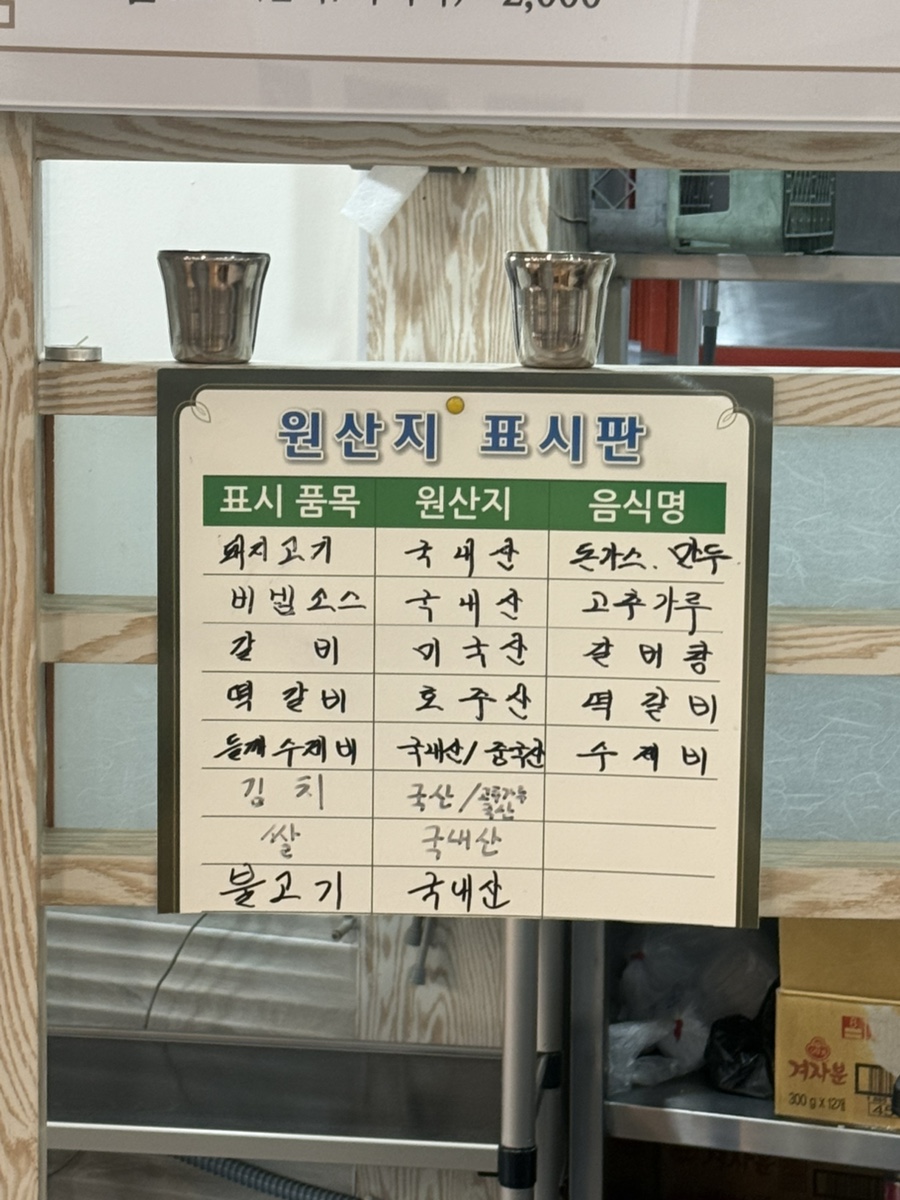 2,000
원산지 표시판
표시 품목 원산지 음식명
돼지고기 국내산 돈가스. 만두
비빔소스 국내산 고추가루
갈비 미국산 갈비탕
떡갈비 호주산 떡갈비
들깨수제비 국내산/중국산 수제비
김치 국산/고추가루
국산
쌀 국내산
불고기 국내산
겨자분
300 g x 12개